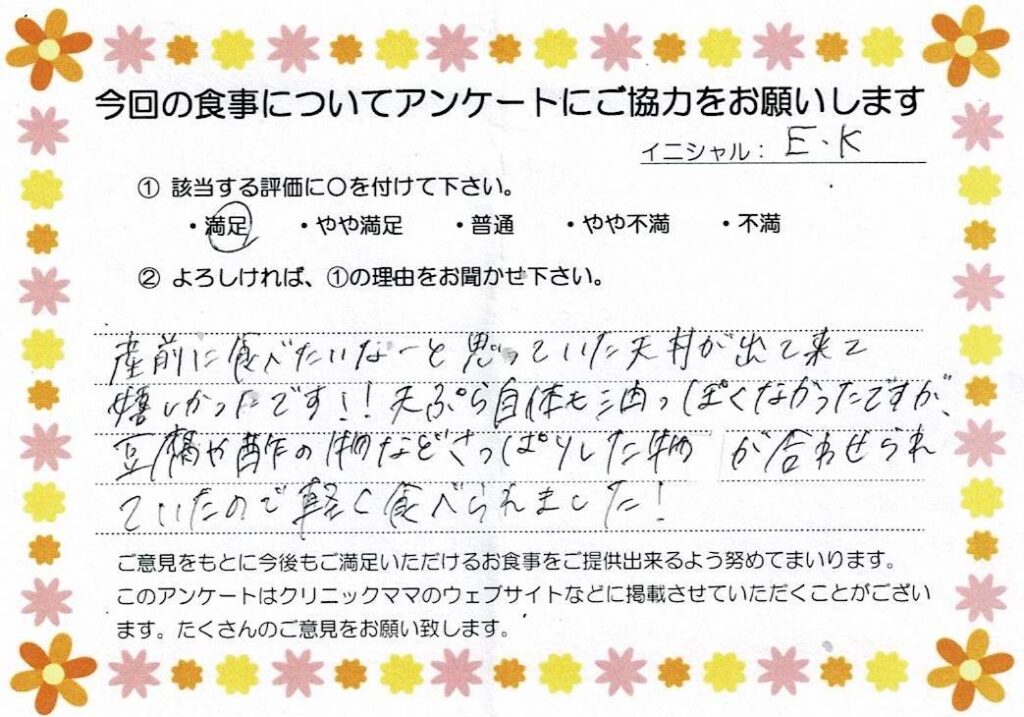 今回の食事についてアンケートにご協力をお願いします
イニシャル： E.K
① 該当する評価に○を付けて下さい。
・満足 ・やや満足 ・普通 ・やや不満 ・不満
② よろしければ、①の理由をお聞かせ下さい。
産前に食べたいなーと思っていた天丼が出て来て
嬉しかったです!! 天ぷら自体も油っぽくなかったですが、
豆腐や酢の物などさっぱりした物 が合わせられ
ていたので軽く食べられました!
ご意見をもとに今後もご満足いただけるお食事をご提供出来るよう努めてまいります。
このアンケートはクリニックママのウェブサイトなどに掲載させていただくことがござい
ます。たくさんのご意見をお願い致します。